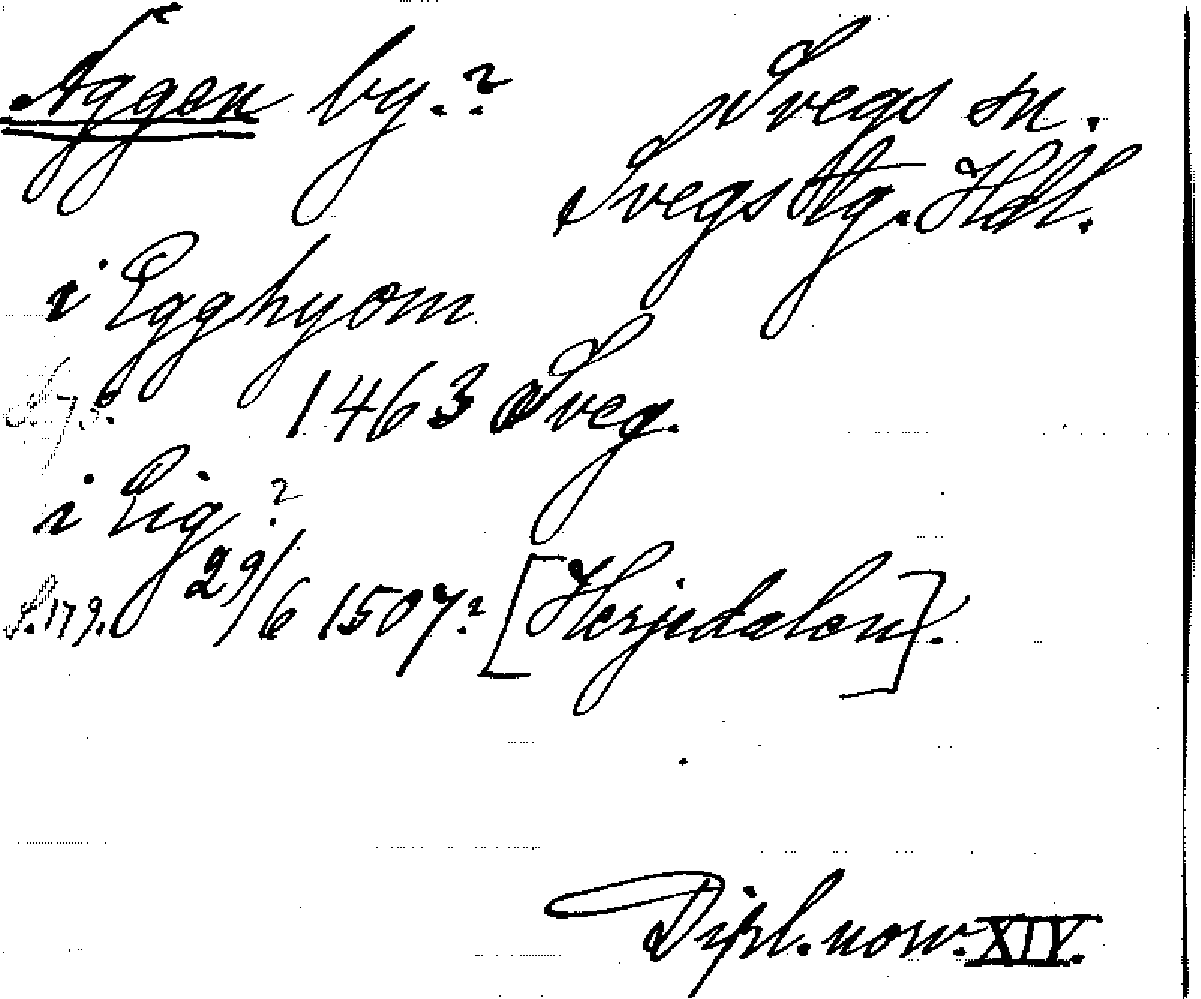 Äggen by.? Svegs sn.
Svegs tlg. Hdl.
i Egghyom
1463 Sveg.
i Eig?
S. 179. 29/6 1507? [Herjedalen].
Dipl. norv. XIV.